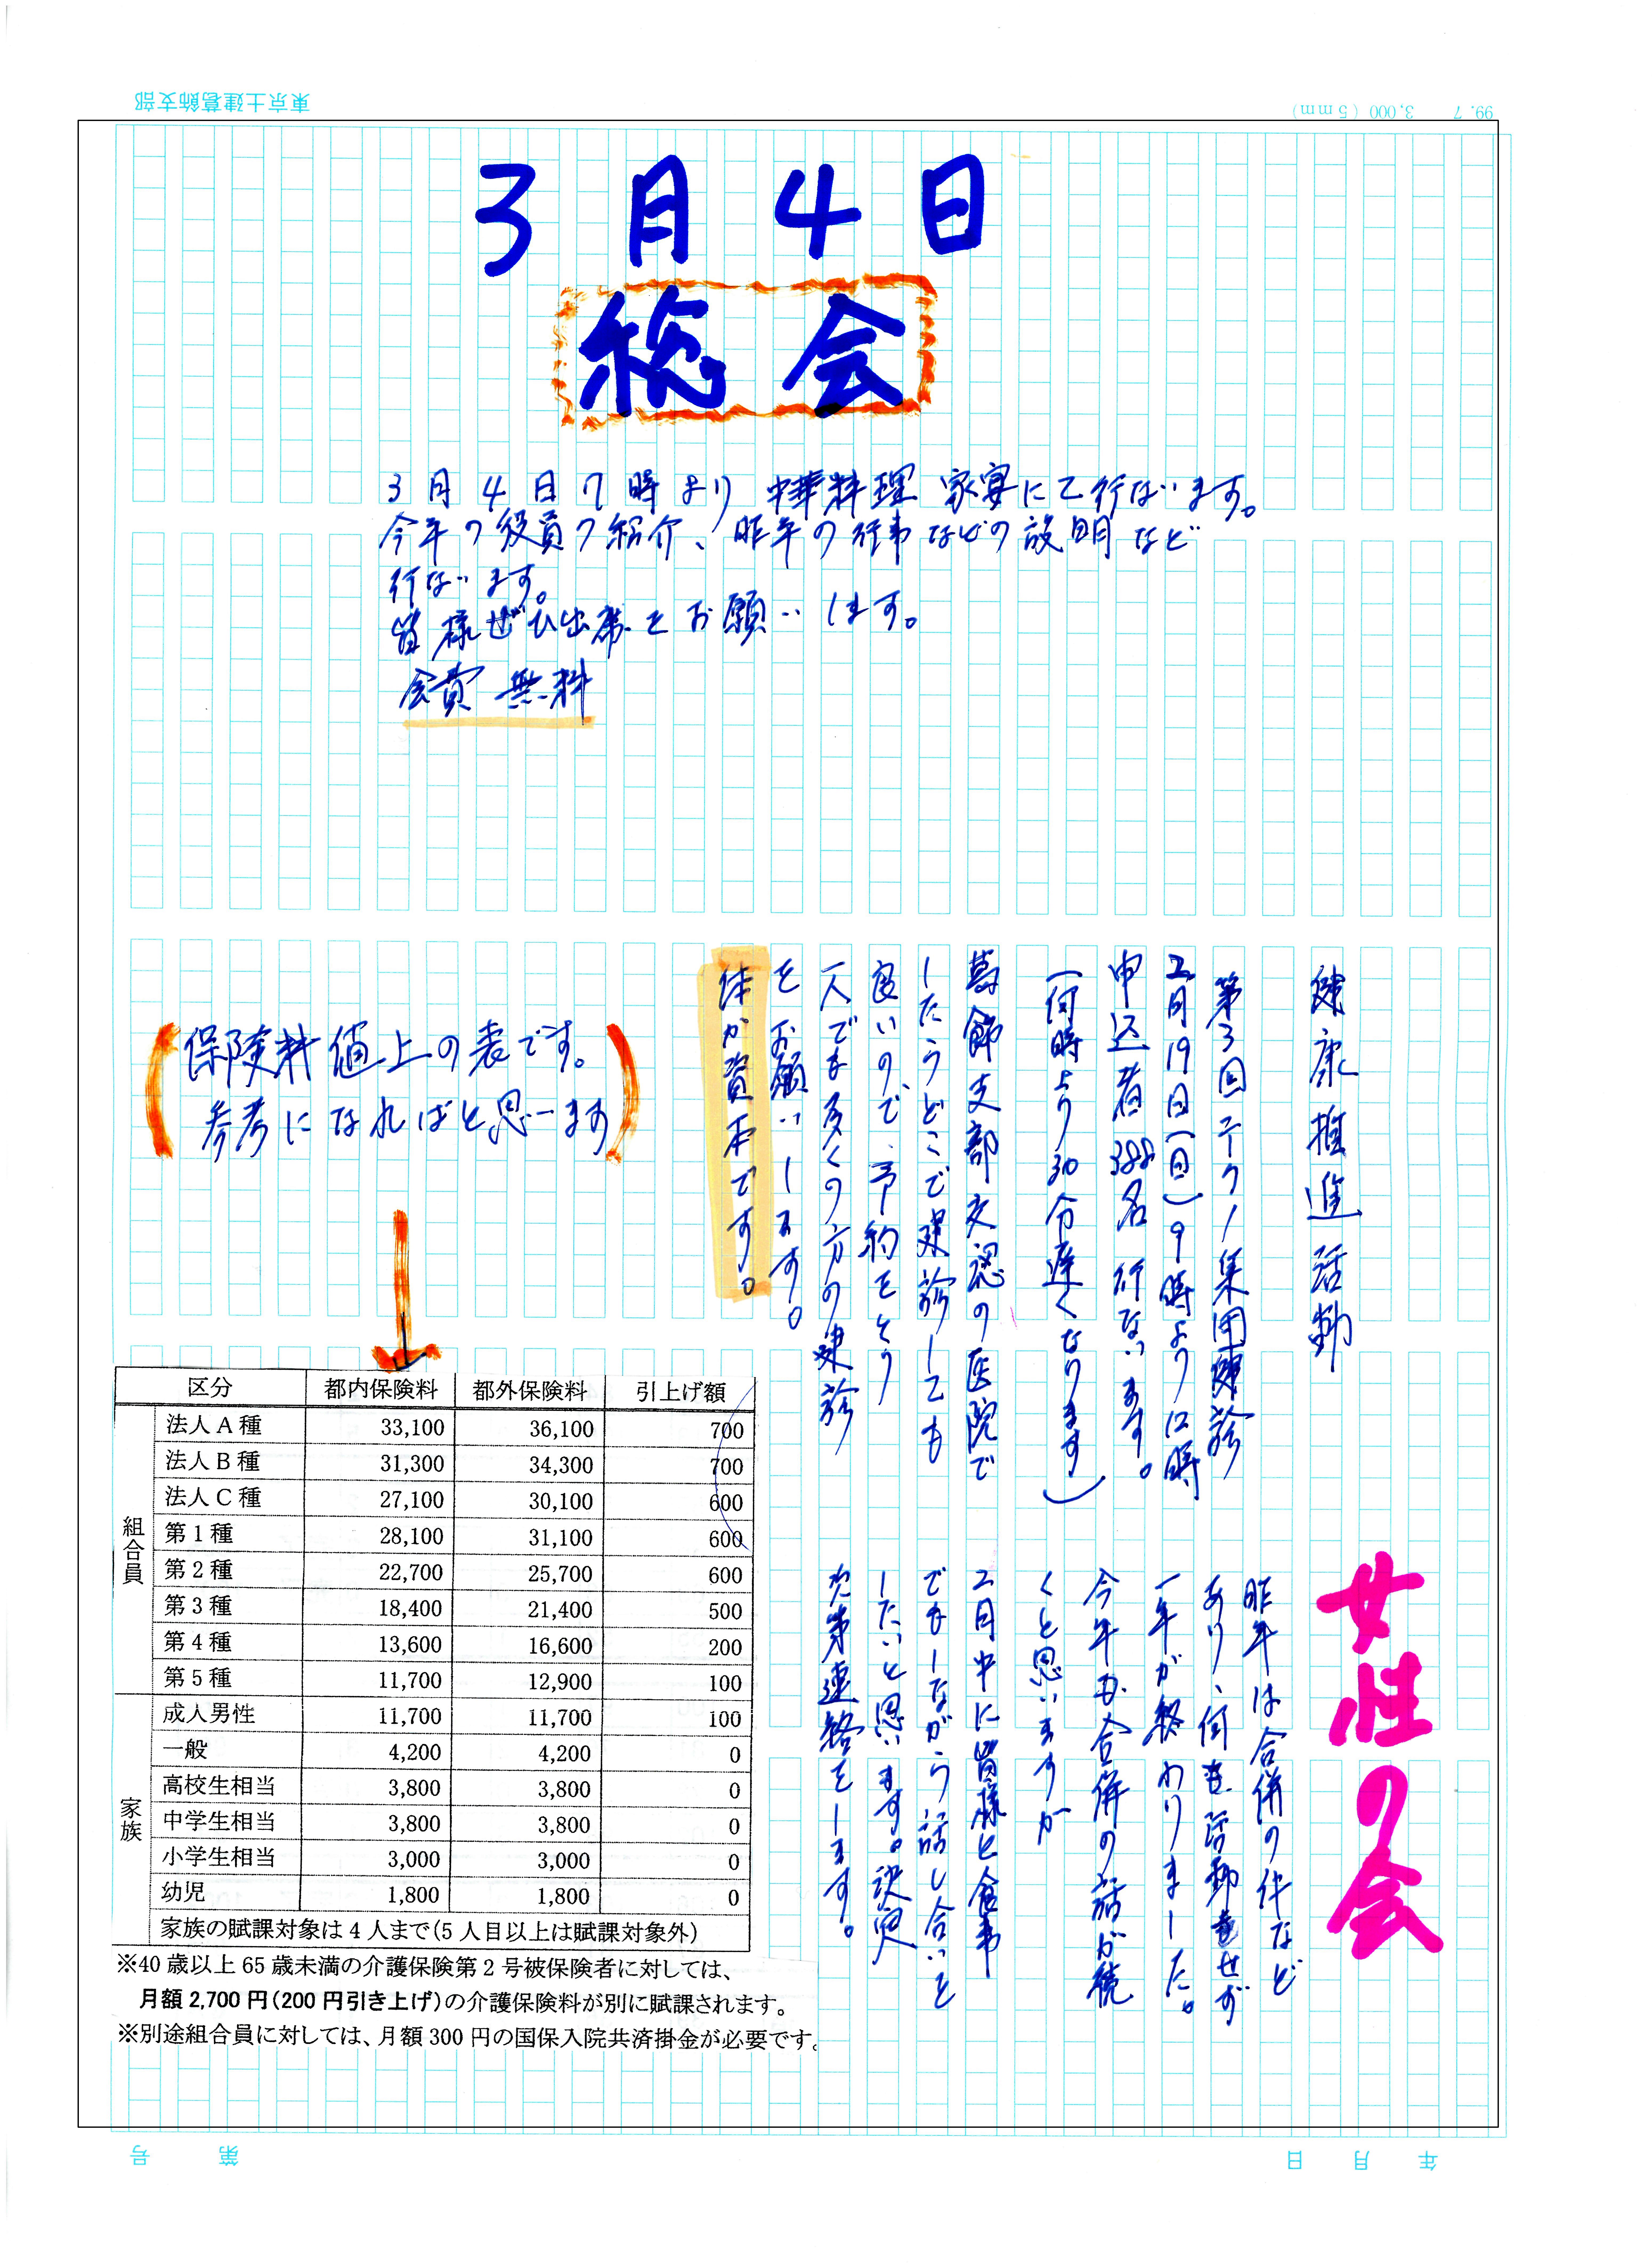 東京土建葛飾支部
99. 7 3,000 (5mm)
3月4日
総会
3月4日7時より中華料理 家宴にて行ないます。
今年の役員の紹介、昨年の行事などの説明など
行ないます。
皆様ぜひ出席をお願いします。
会費 無料
健康推進活動
第3回 集団健診
2月19日(日)9時より12時
申込者388名 行ないます。
(何時より30分遅くなります)
葛飾支部交認の医院で
したらどこで健診しても
良いので、予約をとり
一人でも多くの方の健診
をお願いします。
体が資本です。
(保険料値上の表です。
参考になればと思います)
女性の会
昨年は合併の件など
あり、何も活動もせず
一年が終わりました。
今年も合併の話が続
くと思いますが
2月中に皆様と食事
でもしながら話し合いを
したいと思います。決定
次第連絡をします。
区分 都内保険料 都外保険料 引上げ額
組合員
法人A種 33,100 36,100 700
法人B種 31,300 34,300 700
法人C種 27,100 30,100 600
第1種 28,100 31,100 600
第2種 22,700 25,700 600
第3種 18,400 21,400 500
第4種 13,600 16,600 200
第5種 11,700 12,900 100
家族
成人男性 11,700 11,700 100
一般 4,200 4,200 0
高校生相当 3,800 3,800 0
中学生相当 3,800 3,800 0
小学生相当 3,000 3,000 0
幼児 1,800 1,800 0
家族の賦課対象は4人まで(5人目以上は賦課対象外)
※40歳以上65歳未満の介護保険第2号被保険者に対しては、
月額2,700円(200円引き上げ)の介護保険料が別に賦課されます。
※別途組合員に対しては、月額300円の国保入院共済掛金が必要です。
年 月 日
第 号